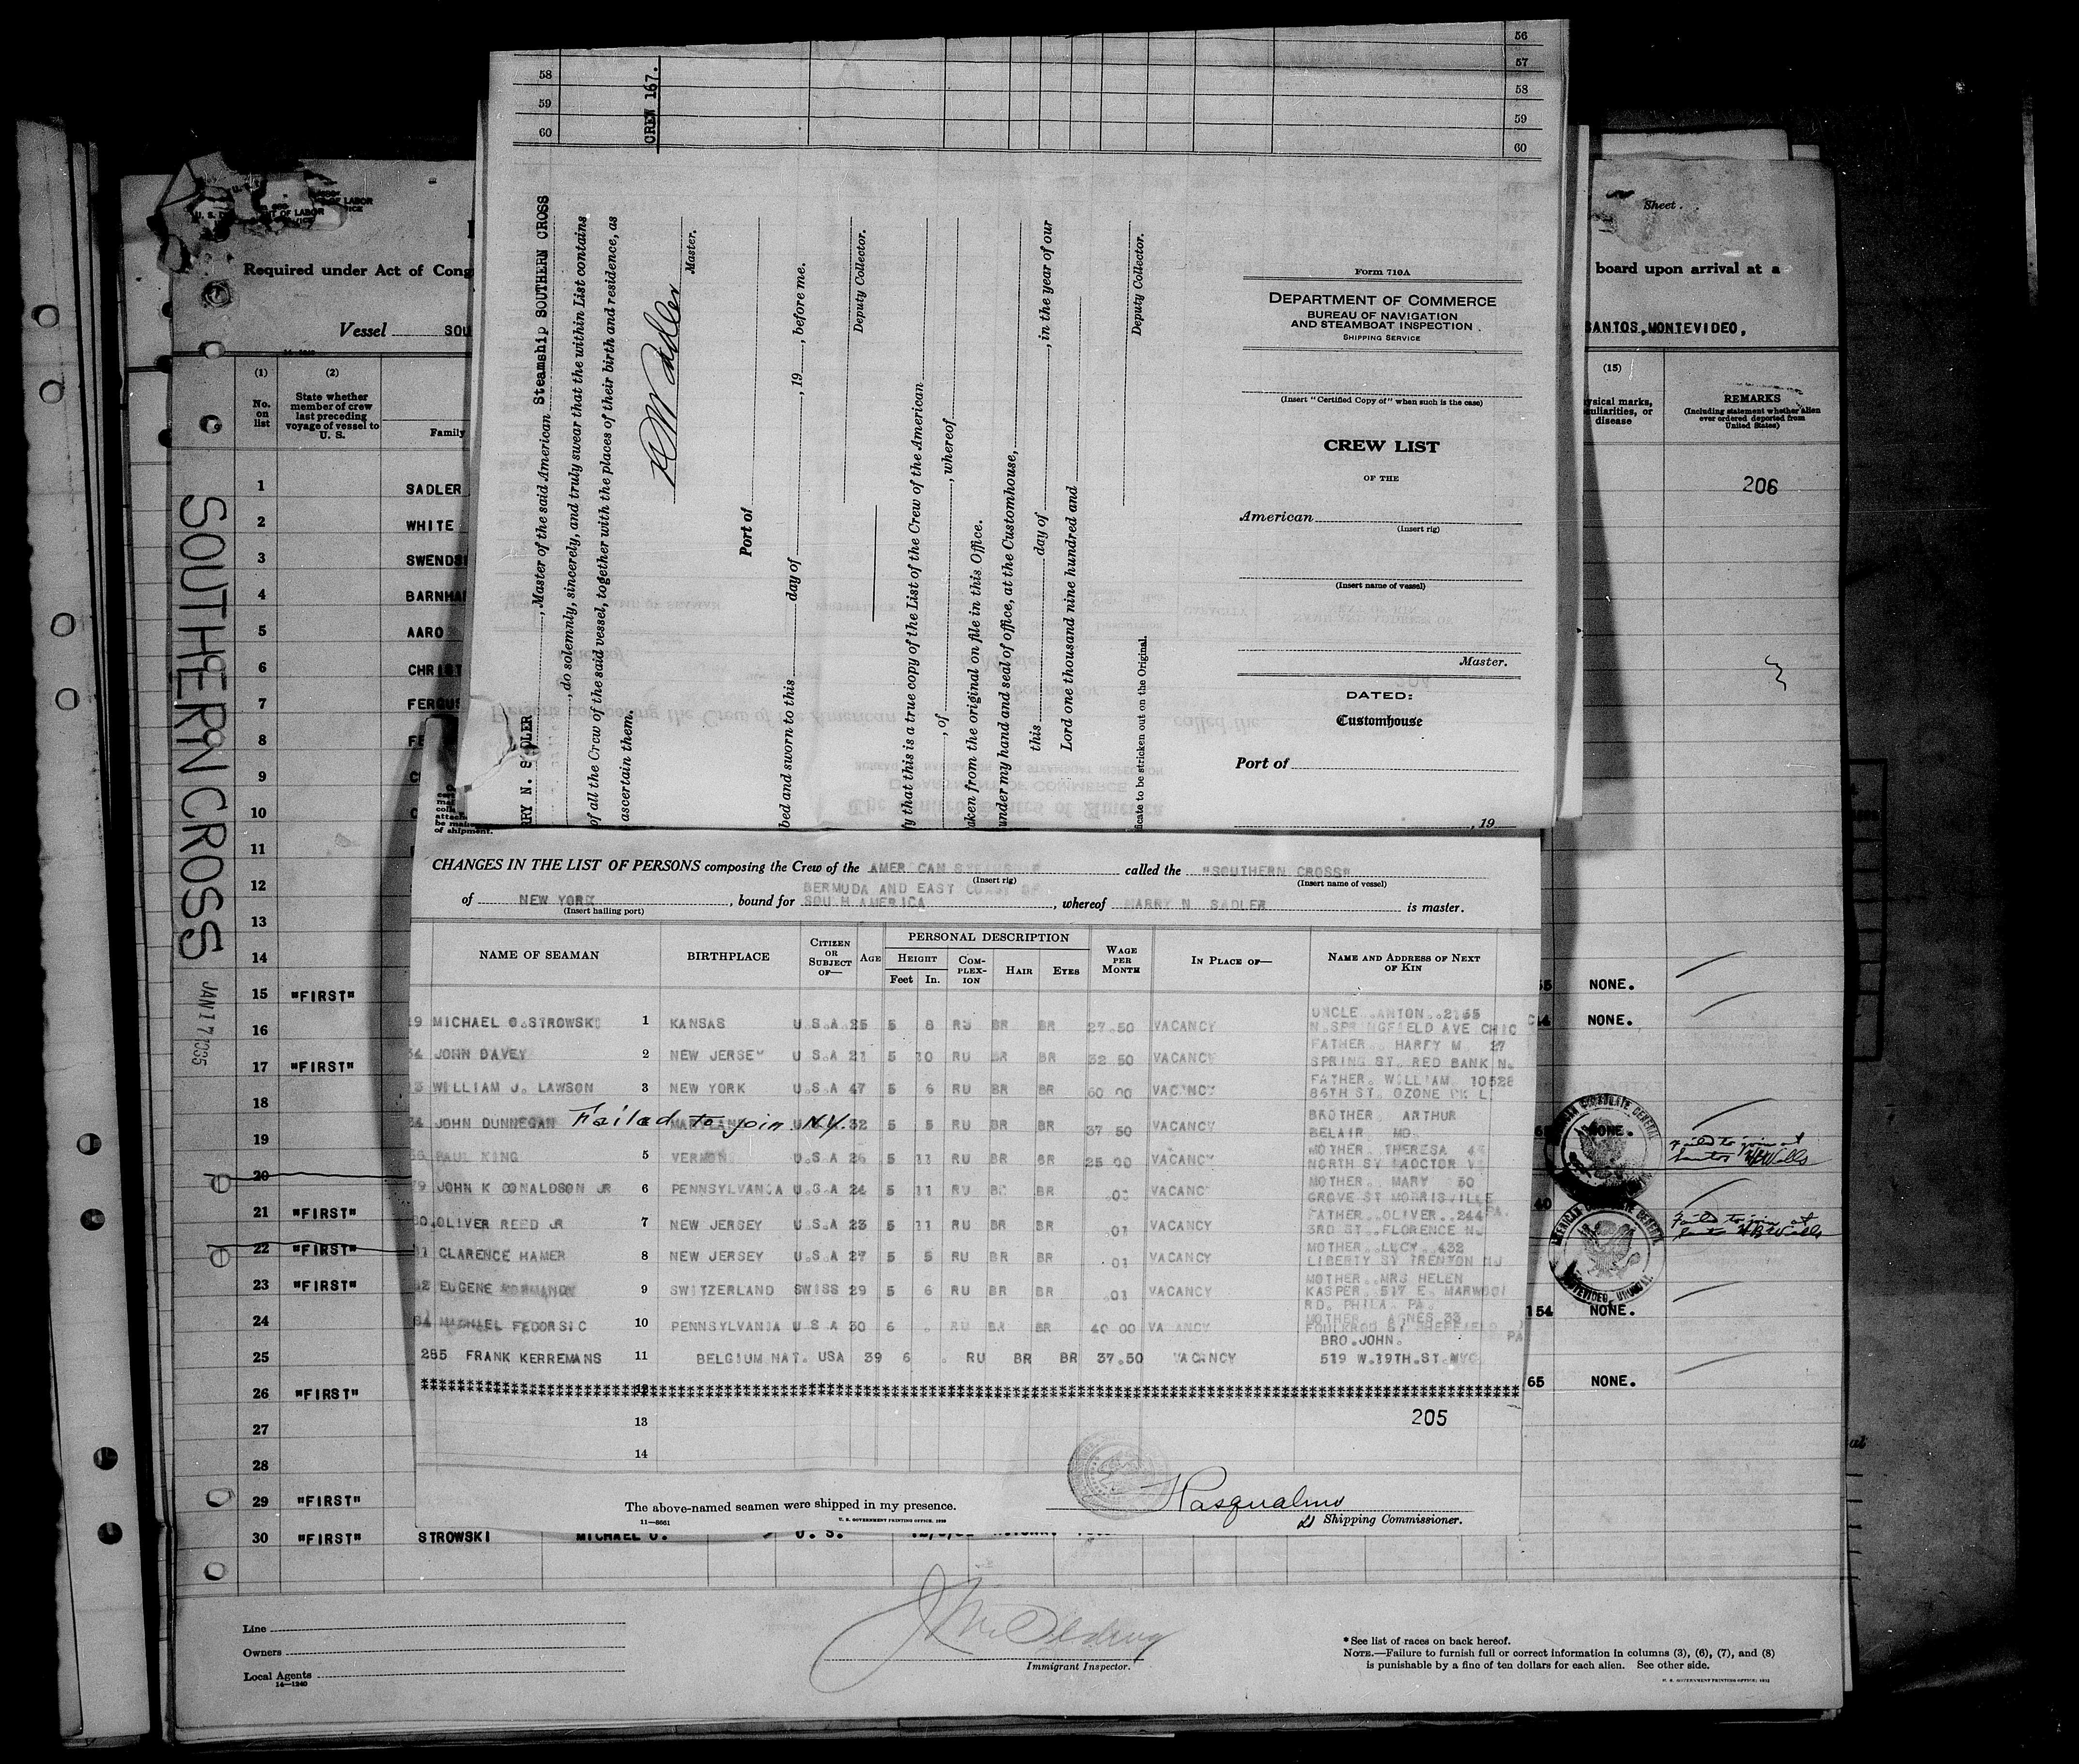 56
57
58
59
60
58
59
60
CREW 167.
RRY N. SADLER, Master of the said American Steamship SOUTHERN CROSS
, do solemnly, sincerely, and truly swear that the within List contains
of all the Crew of the said vessel, together with the places of their birth and residence, as
ascertain them.
Master.
Port of
bed and sworn to this day of , 19 , before me.
Deputy Collector.
fy that this is a true copy of the List of the Crew of the American
, of , whereof
aken from the original on file in this Office.
under my hand and seal of office, at the Customhouse,
this day of , in the year of our
Lord one thousand nine hundred and
Deputy Collector.
ficate to be stricken out on the Original.
Form 710A
DEPARTMENT OF COMMERCE
BUREAU OF NAVIGATION
AND STEAMBOAT INSPECTION
SHIPPING SERVICE
(Insert "Certified Copy of" when such is the case)
CREW LIST
OF THE
American
(Insert rig)
(Insert name of vessel)
Master.
DATED:
Customhouse
Port of
, 19
Sheet
Required under Act of Cong
board upon arrival at a
Vessel SOU
SANTOS, MONTEVIDEO,
(1) No. on list
(2) State whether member of crew last preceding voyage of vessel to U. S.
Family
(15)
ysical marks, uliarities, or disease
REMARKS
(Including statement whether alien ever ordered deported from United States)
206
SOUTHERN CROSS
JAN 17 1935
1 SADLER
2 WHITE
3 SWENDS
4 BARNHA
5 AARO
6 CHRIST
7 FERGUS
8
9
10
11
12
13
14
15 "FIRST" NONE.
16 NONE.
17 "FIRST"
18
19 NONE.
Failed to join at Santos
20
21 "FIRST" 40
Failed to join at Santos
22 "FIRST"
23 "FIRST"
24 154 NONE.
25
26 "FIRST" 65 NONE.
27
28
29 "FIRST"
30 "FIRST" STROWSKI MICHAEL O. U. S.
of shipment.
CHANGES IN THE LIST OF PERSONS composing the Crew of the AMERICAN called the "SOUTHERN CROSS"
(Insert rig) (Insert name of vessel)
BERMUDA AND EAST COAST OF
of NEW YORK , bound for SOUTH AMERICA , whereof HARRY N SADLER is master.
(Insert hailing port)
NAME OF SEAMAN BIRTHPLACE CITIZEN OR SUBJECT OF— AGE PERSONAL DESCRIPTION HEIGHT Feet In. COMPLEXION HAIR EYES WAGE PER MONTH IN PLACE OF— NAME AND ADDRESS OF NEXT OF KIN
MICHAEL O.STROWSKI 1 KANSAS U S.A 25 5 8 RU BR BR 27.50 VACANCY UNCLE ANTON..2155
N.SPRINGFIELD AVE CHIC
JOHN DAVEY 2 NEW JERSEY U S.A 21 5 10 RU BR BR 32 50 VACANCY FATHER. HARRY M. 27
SPRING ST. RED BANK N.
WILLIAM J. LAWSON 3 NEW YORK U S.A 47 5 6 RU BR BR 60 00 VACANCY FATHER. WILLIAM 10528
86TH ST. OZONE PK L
JOHN DUNNEGAN Failed to join N.Y. MARYLAND 32 5 5 RU BR BR 37 50 VACANCY BROTHER ARTHUR
BELAIR MD
PAUL KING 5 VERMONT U.S.A 26 5 11 RU BR BR 25 00 VACANCY MOTHER. THERESA
NORTH ST
JOHN K DONALDSON JR 6 PENNSYLVANIA U.S.A 24 5 11 RU BR BR .01 VACANCY MOTHER. MARY 30
GROVE ST MORRISVILLE PA.
OLIVER REED JR 7 NEW JERSEY U.S.A 23 5 11 RU BR BR .01 VACANCY FATHER..OLIVER..244
3RD ST..FLORENCE NJ
CLARENCE HAMER 8 NEW JERSEY U.S.A 27 5 5 RU BR BR .01 VACANCY MOTHER..LUCY..432
LIBERTY ST TRENTON NJ
EUGENE 9 SWITZERLAND SWISS 29 5 6 RU BR BR .01 VACANCY MOTHER..MRS HELEN
KASPER. 517 E.
RD. PHILA. PA.
MICHAEL FEDORSIC 10 PENNSYLVANIA U S A 30 6 RU BR BR 40 00 VACANCY MOTHER. AGNES 33
FOULKROD ST SHEFFIELD PA
285 FRANK KERREMANS 11 BELGIUM NAT. USA 39 6 . RU BR BR 37.50 VACANCY BRO.JOHN.
519 W.19TH.ST.NYC.
12
13
205
14
The above-named seamen were shipped in my presence.
Pasqualino
Shipping Commissioner.
11—8661
U. S. GOVERNMENT PRINTING OFFICE
Line
Owners
Local Agents
14—1240
Immigrant Inspector.
* See list of races on back hereof.
NOTE.—Failure to furnish full or correct information in columns (3), (6), (7), and (8)
is punishable by a fine of ten dollars for each alien. See other side.